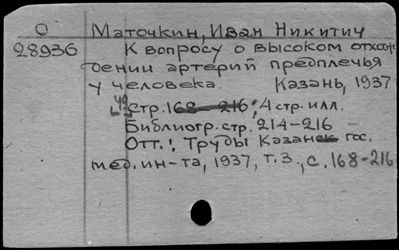 О Маточкин, Иван Никитич
28936 К вопросу о высоком отхож-
дении артерий предплечья
у человека. Казань, 1937
49 стр. 168-216; 4 стр. илл.
Библиогр. стр. 214-216
Отт.: Труды Казанск гос.
мед. ин-та, 1937, т. 3., с. 168-216